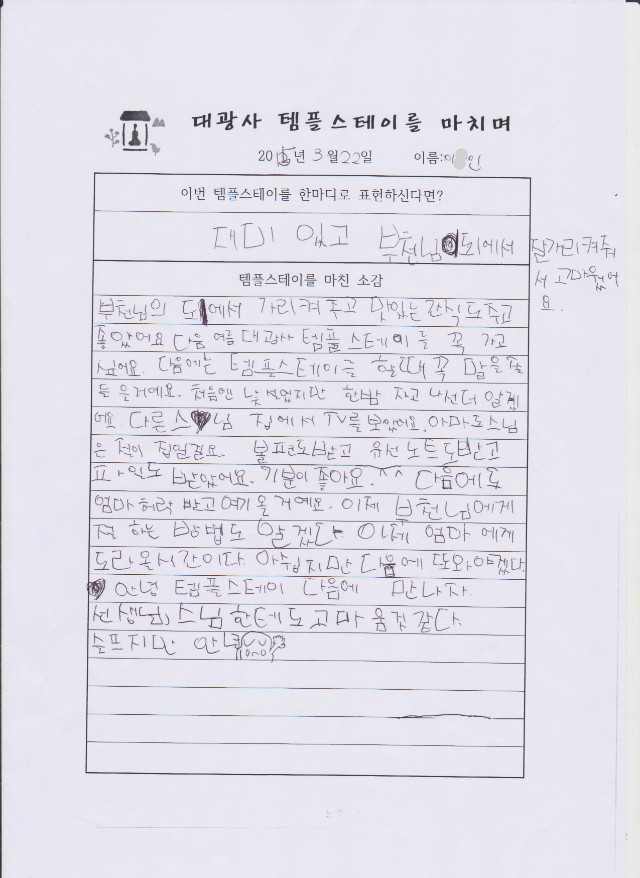 대광사 템플스테이를 마치며
2015년 3월 22일 이름:이 인
이번 템플스테이를 한마디로 표현하신다면?
재미 있고 부천님 되에서 잘가리켜줘
서 고마웠어
요.
템플스테이를 마친 소감
부천님의 되에서 가리켜 주고 맛있는 간식도 주고
좋았어요 다음 여름 대광사 템플스테이를 꼭 가고
싶어요. 다음에는 템플스테이를 할때 꼭 말을 잘
들을거예요. 처음엔 낯설었지만 한밤 자고 나선 더 알겠
어요. 다른 스 님 집에서 TV를 보았어요. 아마도 스님
은 절이 집일걸요. 볼펜도받고 유선노트도받고
파일도 받았어요. 기분이 좋아요. ^^ 다음에도
엄마 허락 받고 여기 올 거예요. 이제 부천님에게
절 하는 방법도 알겠다 이제 엄마 에게
도라 올시간이다. 아쉽지만 다음에 또와야겠다.
안녕 템플스테이 다음에 만나자.
선생님, 스님 한테도 고마 움것 같다.
슬프지만 안녕